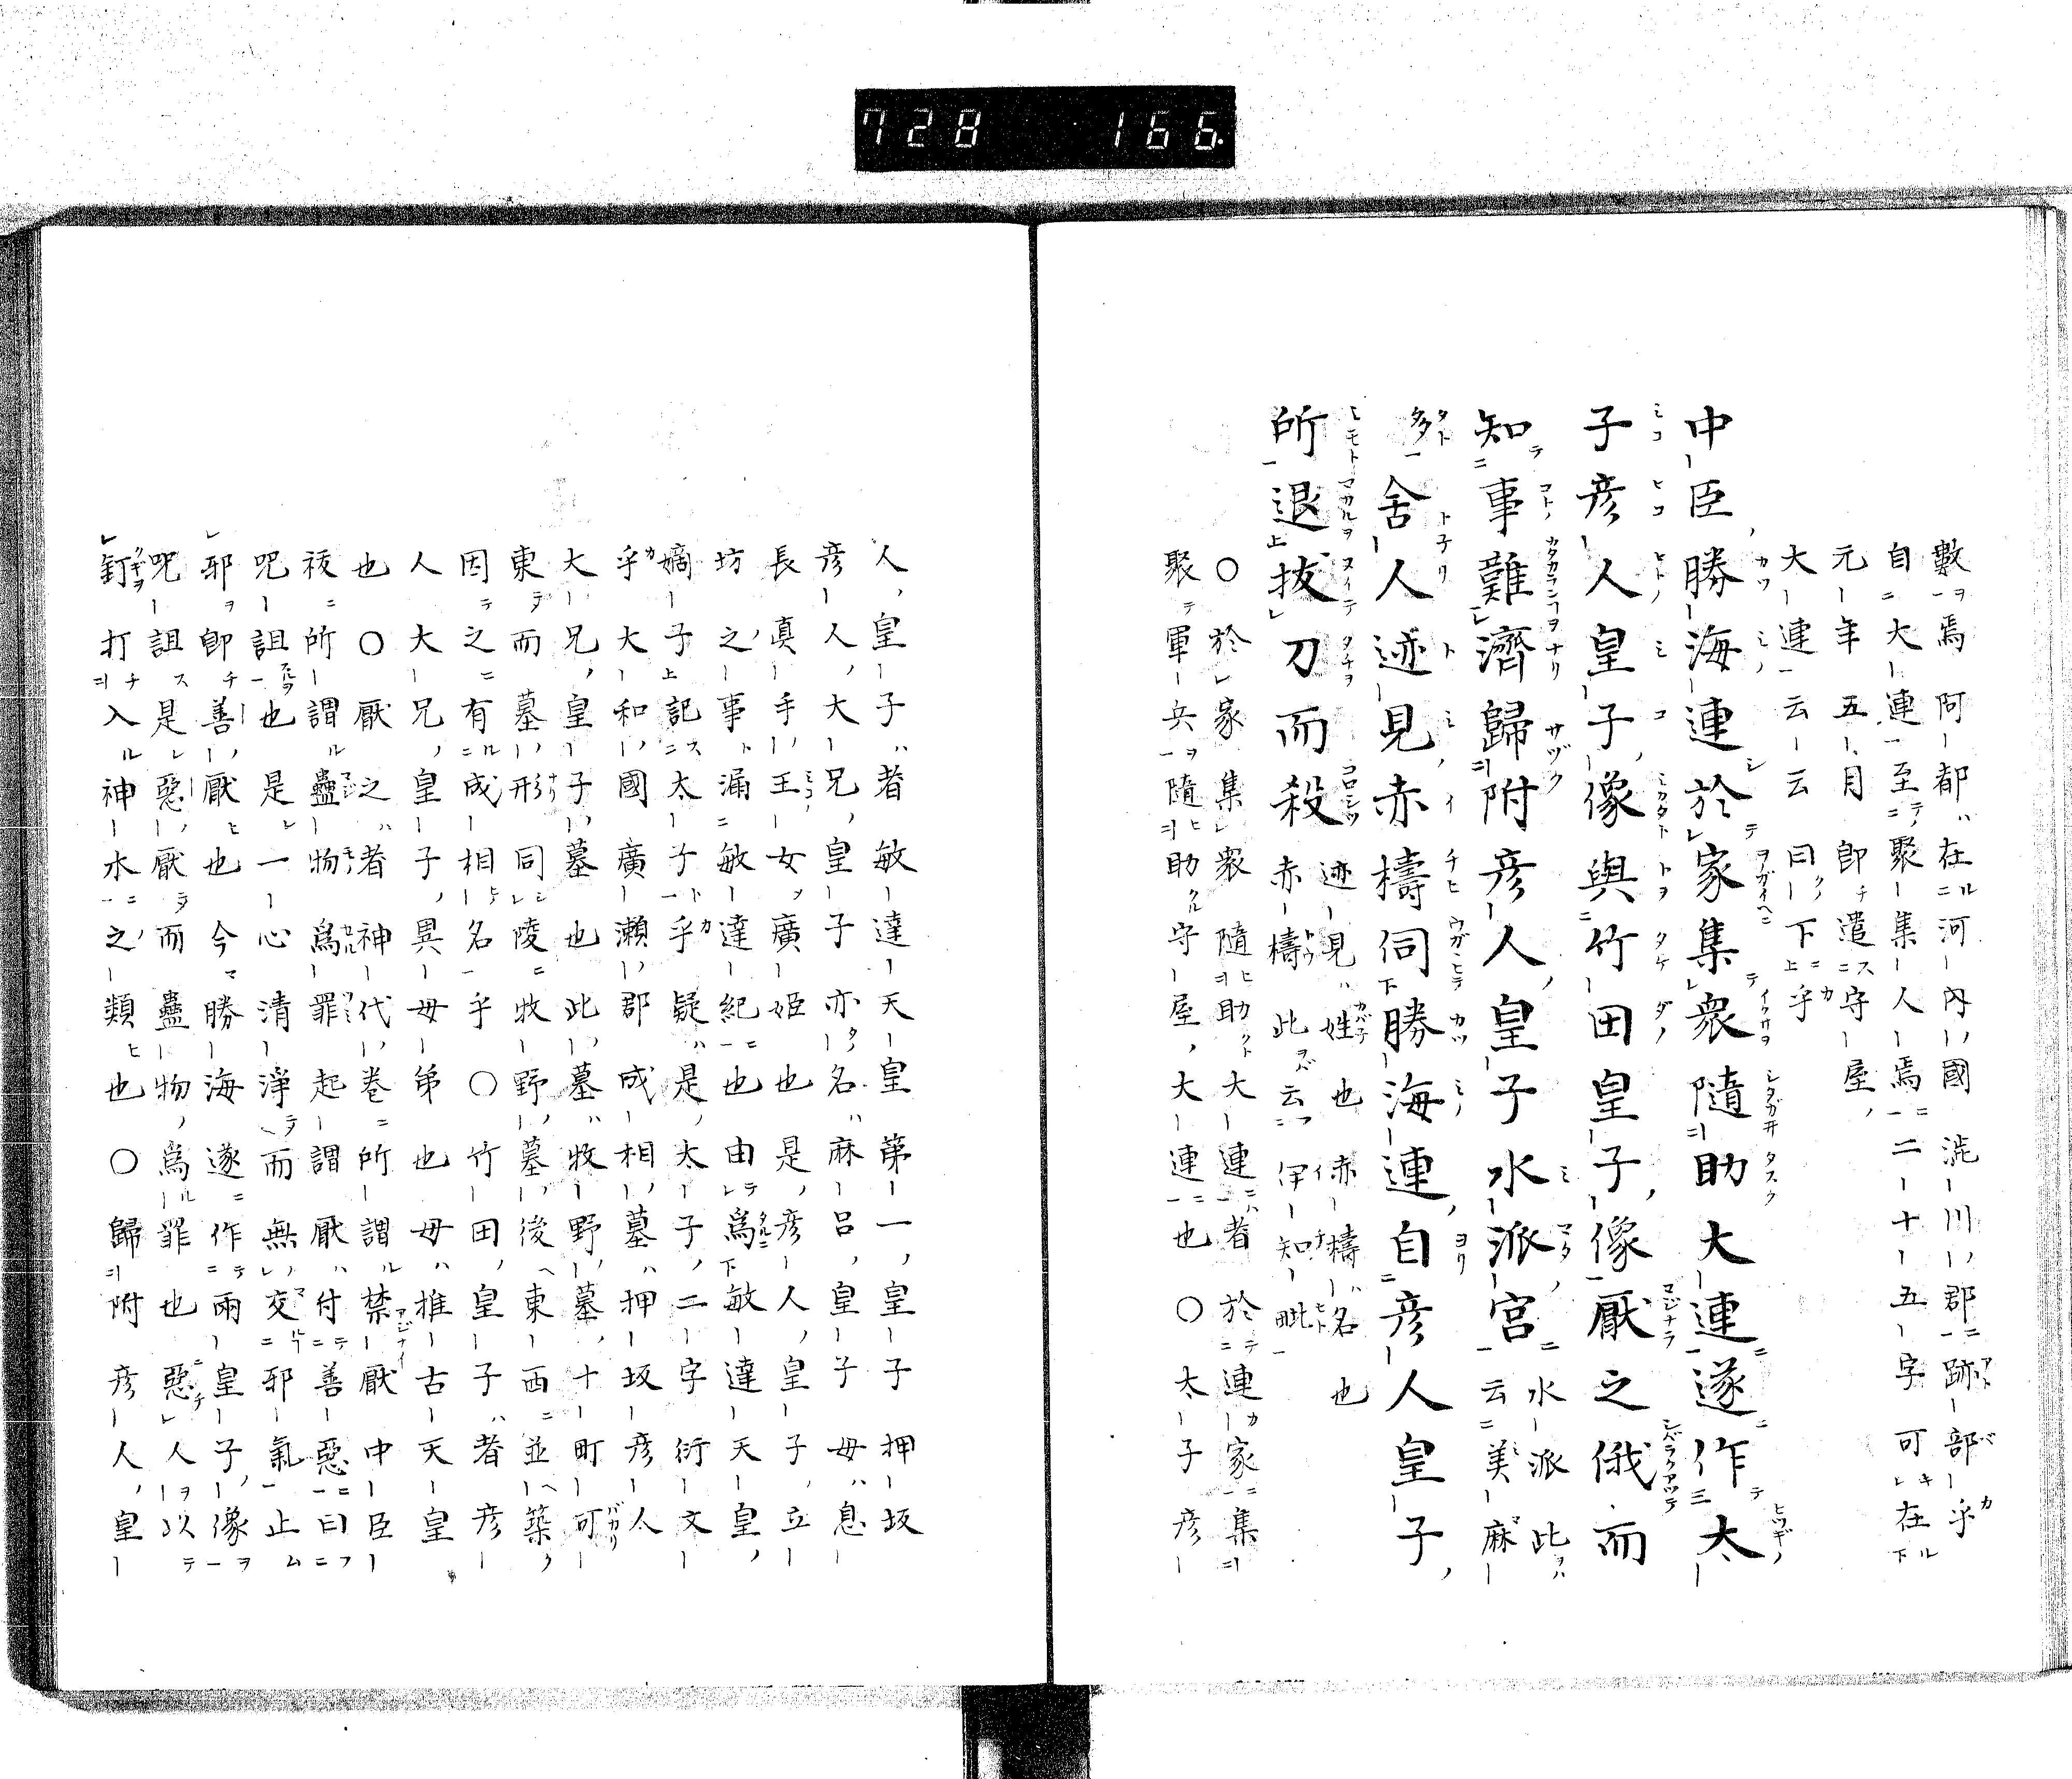 728 166
數焉阿都在河內國澁川郡跡部乎
自大連至聚集人焉二十五字可在
元年五月即遣守屋
大連云云曰下乎
中臣勝海連於家集衆隨助大連遂作太
子彦人皇子像與竹田皇子像厭之俄而
知事難濟歸附彦人皇子水派宮水派此云美麻
多舍人迹見赤檮伺勝海連自彦人皇子
所退拔刀而殺迹見姓也赤檮名也赤檮此云伊知毗
○於家集衆隨助大連者於連家集
聚軍兵隨助守屋大連也○太子彦
人皇子者敏達天皇第一皇子押坂
彦人大兄皇子亦名麻呂皇子母息
長真手王女廣姬也是彦人皇子立
坊之事漏敏達紀也由爲敏達天皇
嫡子記太子乎疑是太子二字衍文
乎大和國廣瀨郡成相墓押坂彦人
大兄皇子墓也此墓牧野墓十町可
東而墓形同陵牧野墓後東西並築
因之有成相名乎○竹田皇子者彦
人大兄皇子異母弟也母推古天皇
也○厭之者神代卷所謂禁厭中臣
祓所謂蠱物爲罪起謂厭付善惡曰
呪詛也是一心清淨而無交邪氣止
邪即善厭也今勝海遂作兩皇子像
呪詛是惡厭而蠱物爲罪也惡人以
釘打入神水之類也○歸附彦人皇